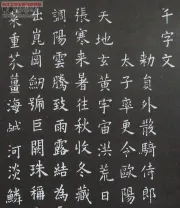 千字文
勅員外散騎侍郎
太子率更令歐陽
天地玄黃宇宙洪荒日
張寒來暑往秋收冬藏
調陽雲騰致雨露結為
出崑崗劒號巨闕珠稱
菜重芥薑海鹹河淡鱗